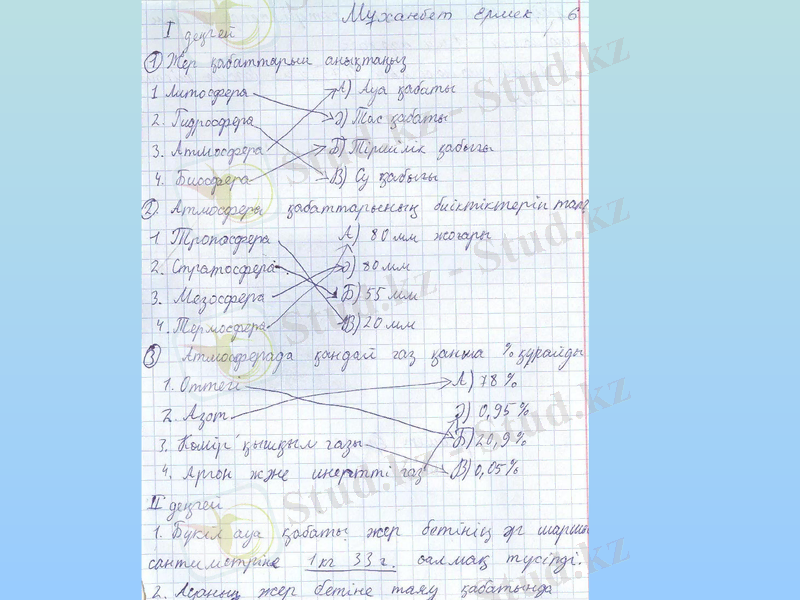 Мұханбет Ермек 6
I деңгей
① Жер қабаттарын анықтаңыз
1 Литосфера А) Ауа қабаты
2. Гидросфера Ә) Тас қабаты
3. Атмосфера Б) Тіршілік қабығы
4. Биосфера В) Су қабығы
② Атмосфера қабаттарының биіктіктерін
1 Тропосфера А) 80 мм жоғары
2. Стратосфера Ә) 80 мм
3. Мезосфера Б) 55 мм
4. Термосфера В) 20 мм
③ Атмосферада қандай газ қанша % құрайды
1. Оттегі А) 78 %
2. Азот Ә) 0,95 %
3. Көмір қышқыл газы Б) 20,9 %
4. Аргон және инертті газ В) 0,05 %
II деңгей
1. Бүкіл ауа қабаты жер бетінің әр шаршы
сантиметріне 1 кг 33 г. салмақ түсірді.
2. Ауаның жер бетіне таяу қабатында
Stud.kz - Stud.kz
Stud.kz - Stud.kz
Stud.kz - Stud.kz
Stud.kz